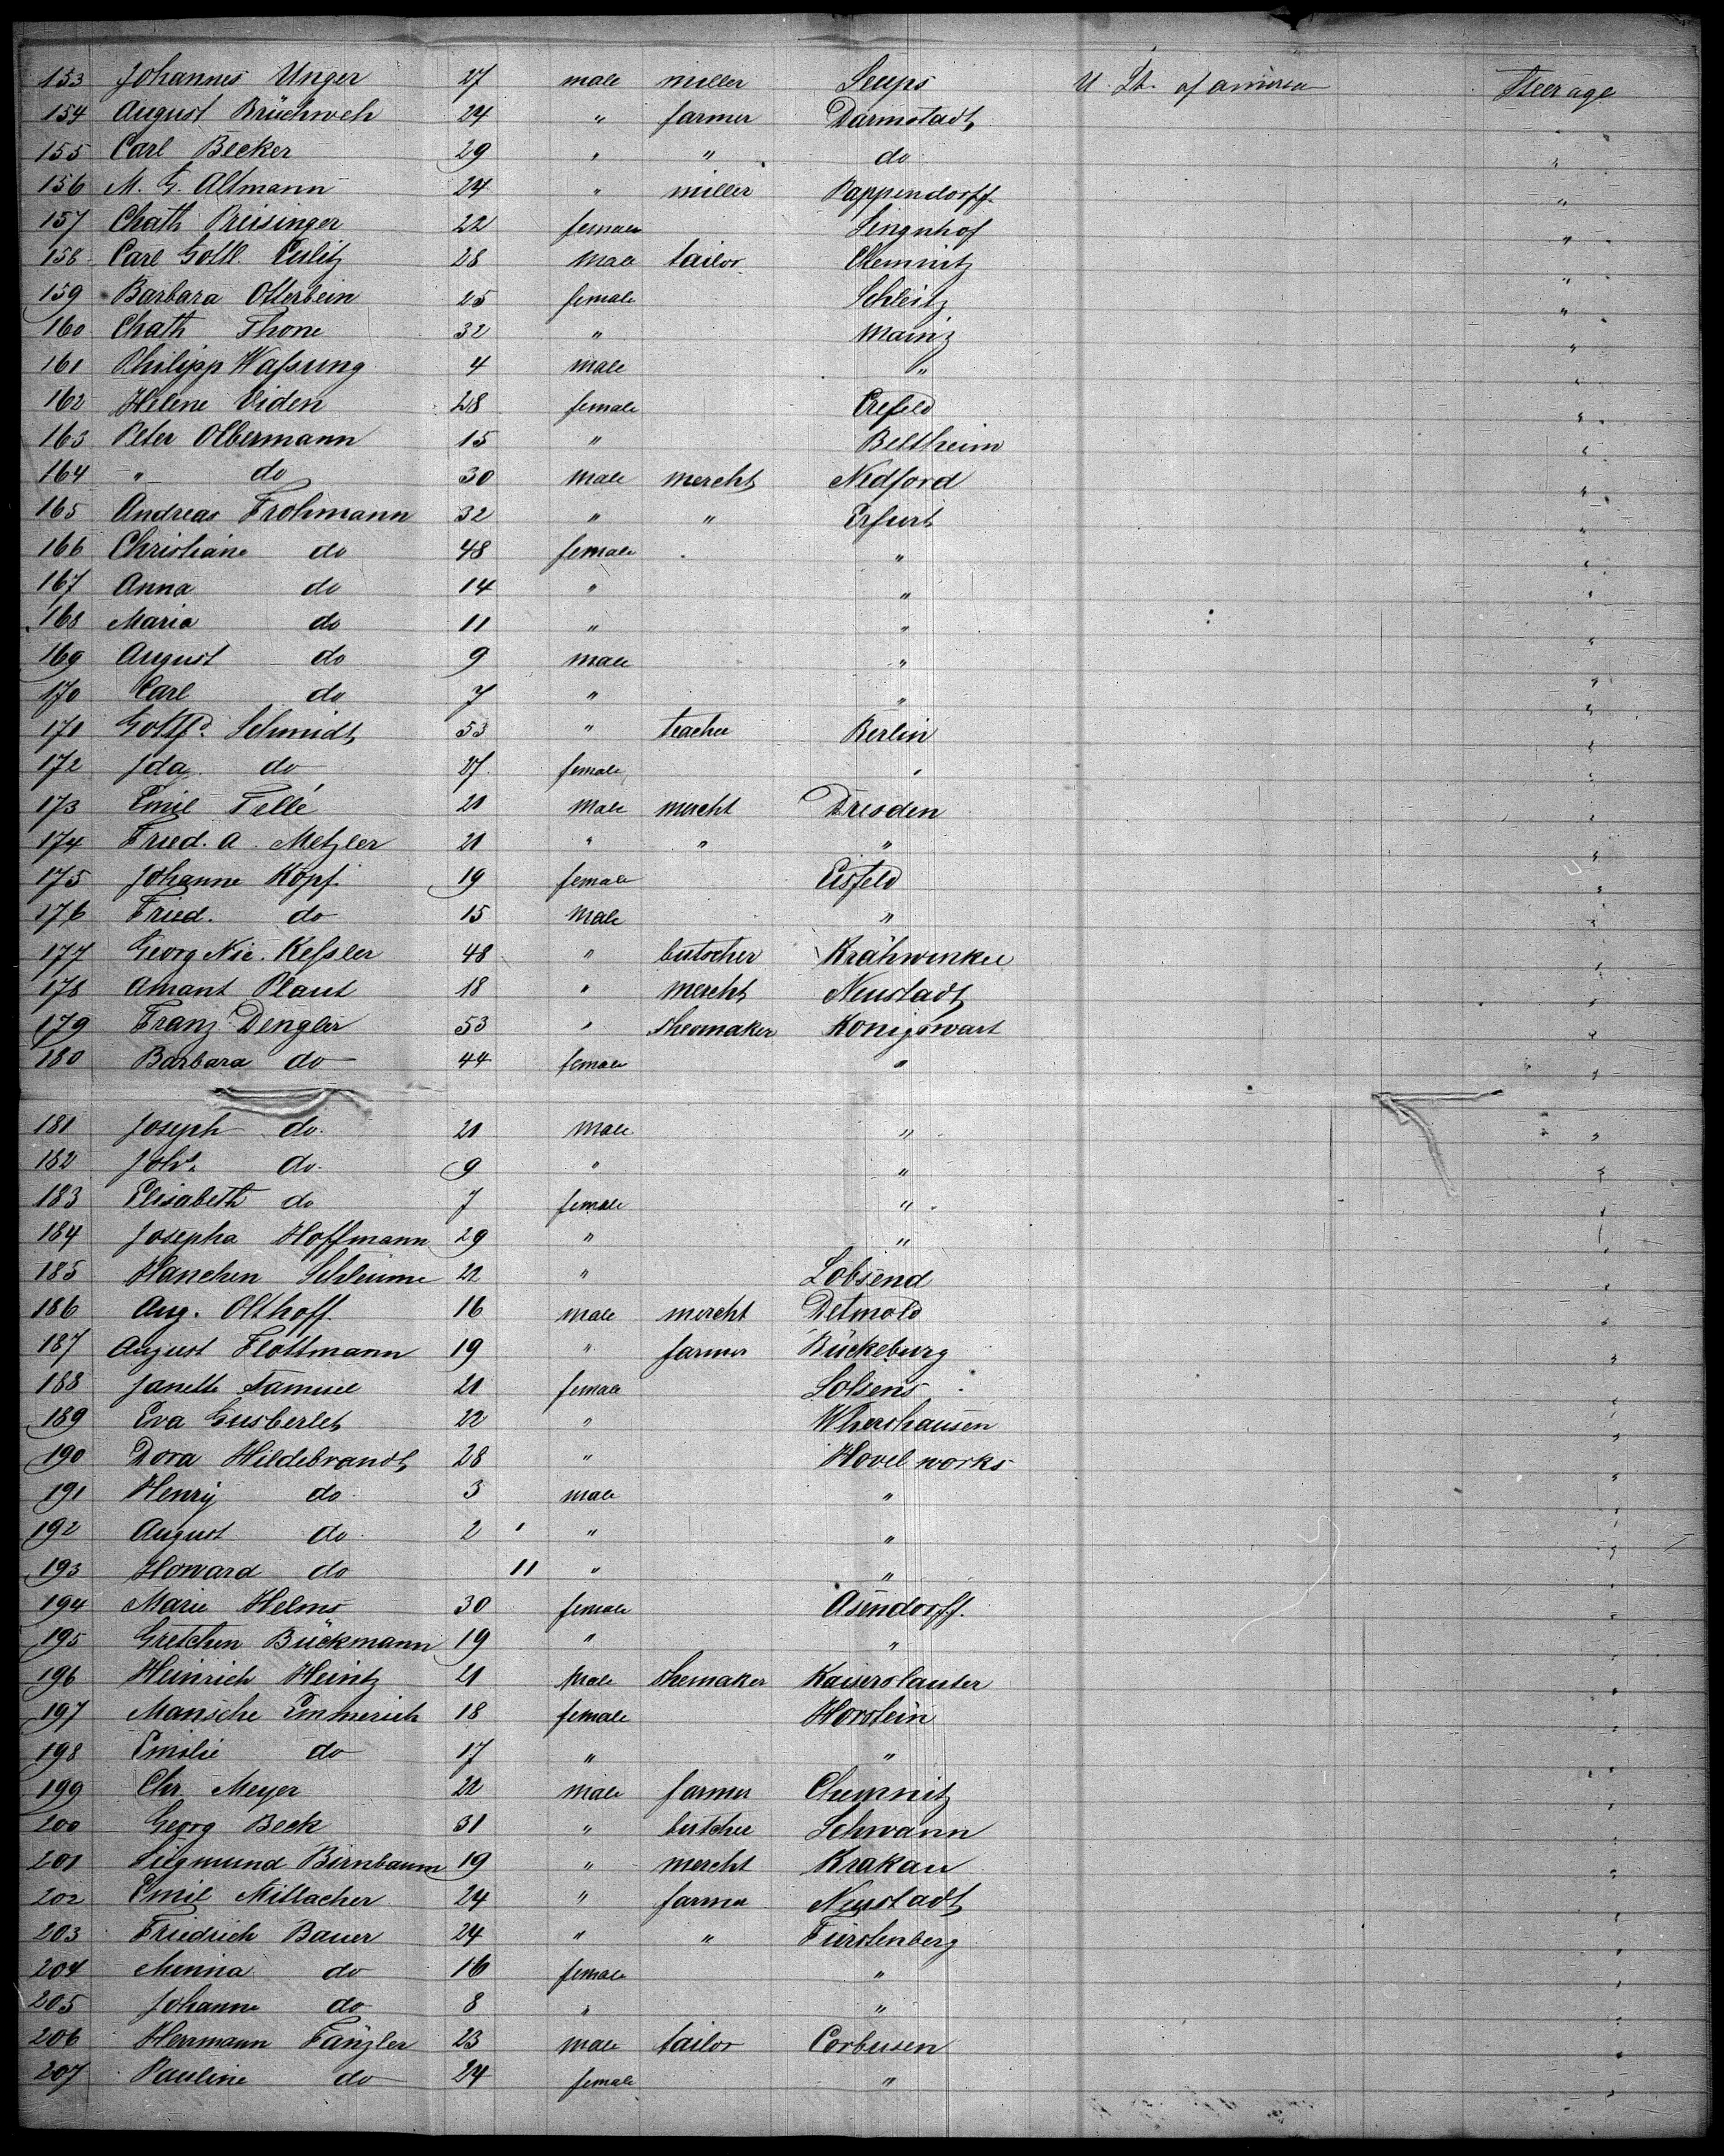 153 Johannes Unger 27 male miller Seups U. St. of america Steerage
154 August Brüchweh 24 " farmer Darmstadt "
155 Carl Becker 29 " " do "
156 M. G. Altmann 24 " miller Pappendorff "
157 Chath Preisinger 22 female Singnhof "
158 Carl Gottl. Eulitz 28 male tailor Chemnitz "
159 Barbara Otterbein 25 female Schleitz "
160 Chath Thone 32 " Mainz "
161 Philipp Waßung 4 male " "
162 Helene Eiden 28 female Crefeld "
163 Peter Olbermann 15 " Beltheim "
164 " do 30 male mercht Nedford "
165 Andreas Frohmann 32 " " Erfurt "
166 Christiane do 48 female " "
167 Anna do 14 " " "
168 Maria do 11 " " "
169 August do 9 male " "
170 Carl do 7 " " "
171 Gottfd. Schmidt 53 " teacher Berlin "
172 Ida do 27 female " "
173 Emil Tellé 21 male mercht Dresden "
174 Fried. A. Metzler 21 " " " "
175 Johanne Kopf 19 female Eisfeld "
176 Fried. do 15 male " "
177 Georg Nic. Keßler 48 " butscher Krähwinkel "
178 Amant Plaut 18 " mercht Neustadt "
179 Franz Dengler 53 " Sheomaker Konigswart "
180 Barbara do 44 female " "
181 Joseph do 21 male " "
182 Johs. do 9 " " "
183 Elisabeth do 7 female " "
184 Josepha Hoffmann 29 " " "
185 Hanchen Schleime 22 " Lobsend "
186 Aug. Olthoff 16 male mercht Detmold "
187 August Flottmann 19 " farmer Bückeburg "
188 Janette Samuel 21 female Lobsens "
189 Eva Gusberlet 22 " Whershausen "
190 Dora Hildebrandt 28 " Hovel works "
191 Henry do 3 male " "
192 August do 2 " " "
193 Howard do 11 " " "
194 Marie Helms 30 female Asendorff "
195 Gretchen Bückmann 19 " " "
196 Heinrich Heintz 21 male Shemaker Kaiserslauter "
197 Mansche Emmerich 18 female Horstein "
198 Emilie do 17 " " "
199 Chr. Meyer 22 male farmer Chemnitz "
200 Georg Beck 31 " butcher Schwann "
201 Siegmund Birnbaum 19 " mercht Krakau "
202 Emil Mittacher 24 " farmer Neustadt "
203 Friedrich Bauer 24 " " Fürstenberg "
204 Minna do 16 female " "
205 Johanne do 8 " " "
206 Herrmann Tänzler 23 male tailor Corbusen "
207 Pauline do 24 female " "